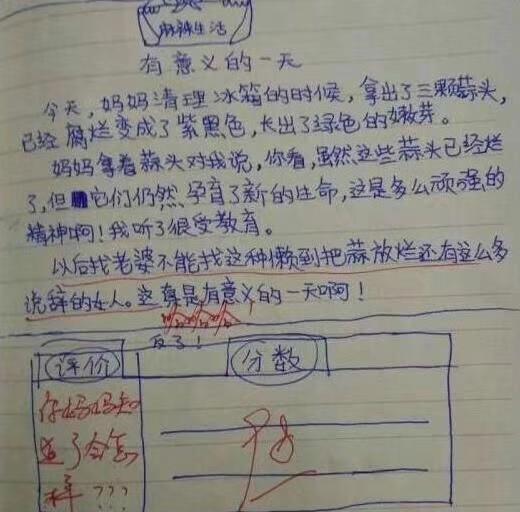 麻辣生活
有意义的一天
今天,妈妈清理冰箱的时候,拿出了三颗蒜头,
已经腐烂变成了紫黑色,长出了绿色的嫩芽。
妈妈拿着蒜头对我说,你看,虽然这些蒜头已经烂
了,但它们仍然孕育了新的生命,这是多么顽强的
精神啊!我听了很受教育。
以后找老婆不能找这种懒到把蒜放烂还有这么多
说辞的女人。这真是有意义的一天啊!
哈哈哈哈
反了!
评价
分数
你妈妈知
道了会怎
样???